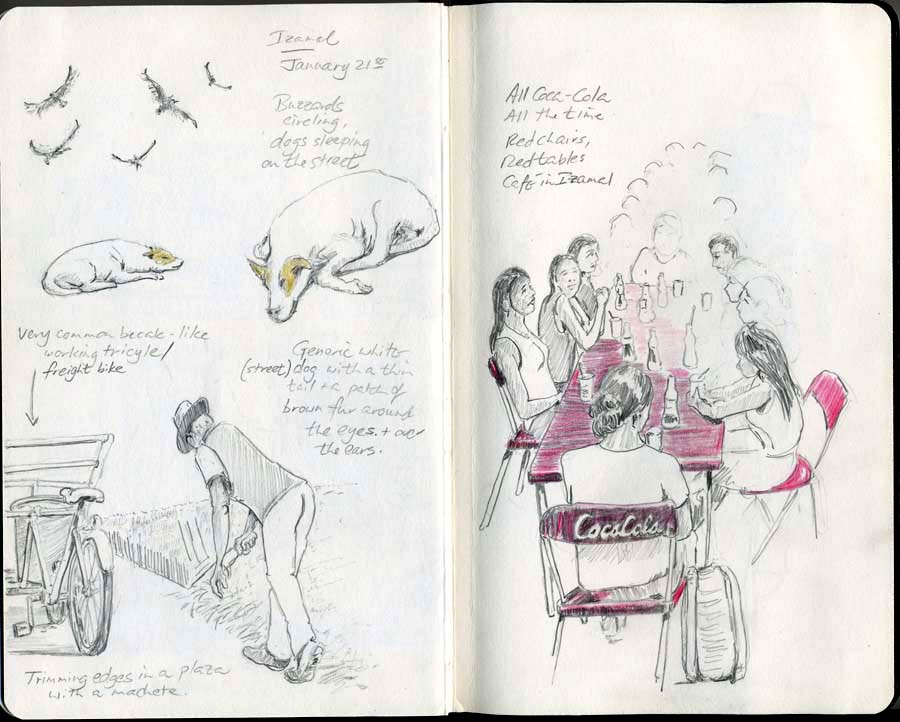 Izamal
January 21st
Buzzards
circling,
dogs sleeping
on the street
Very common becak-like
working tricycle/
freight bike
Generic white
(street) dog with a thin
tail + a patch of
brown fur around
the eyes + over
the ears.
Trimming edges in a plaza
with a machete.
All Coca-Cola
All the time
Red chairs,
Red tables
Café in Izamal
CocaCola